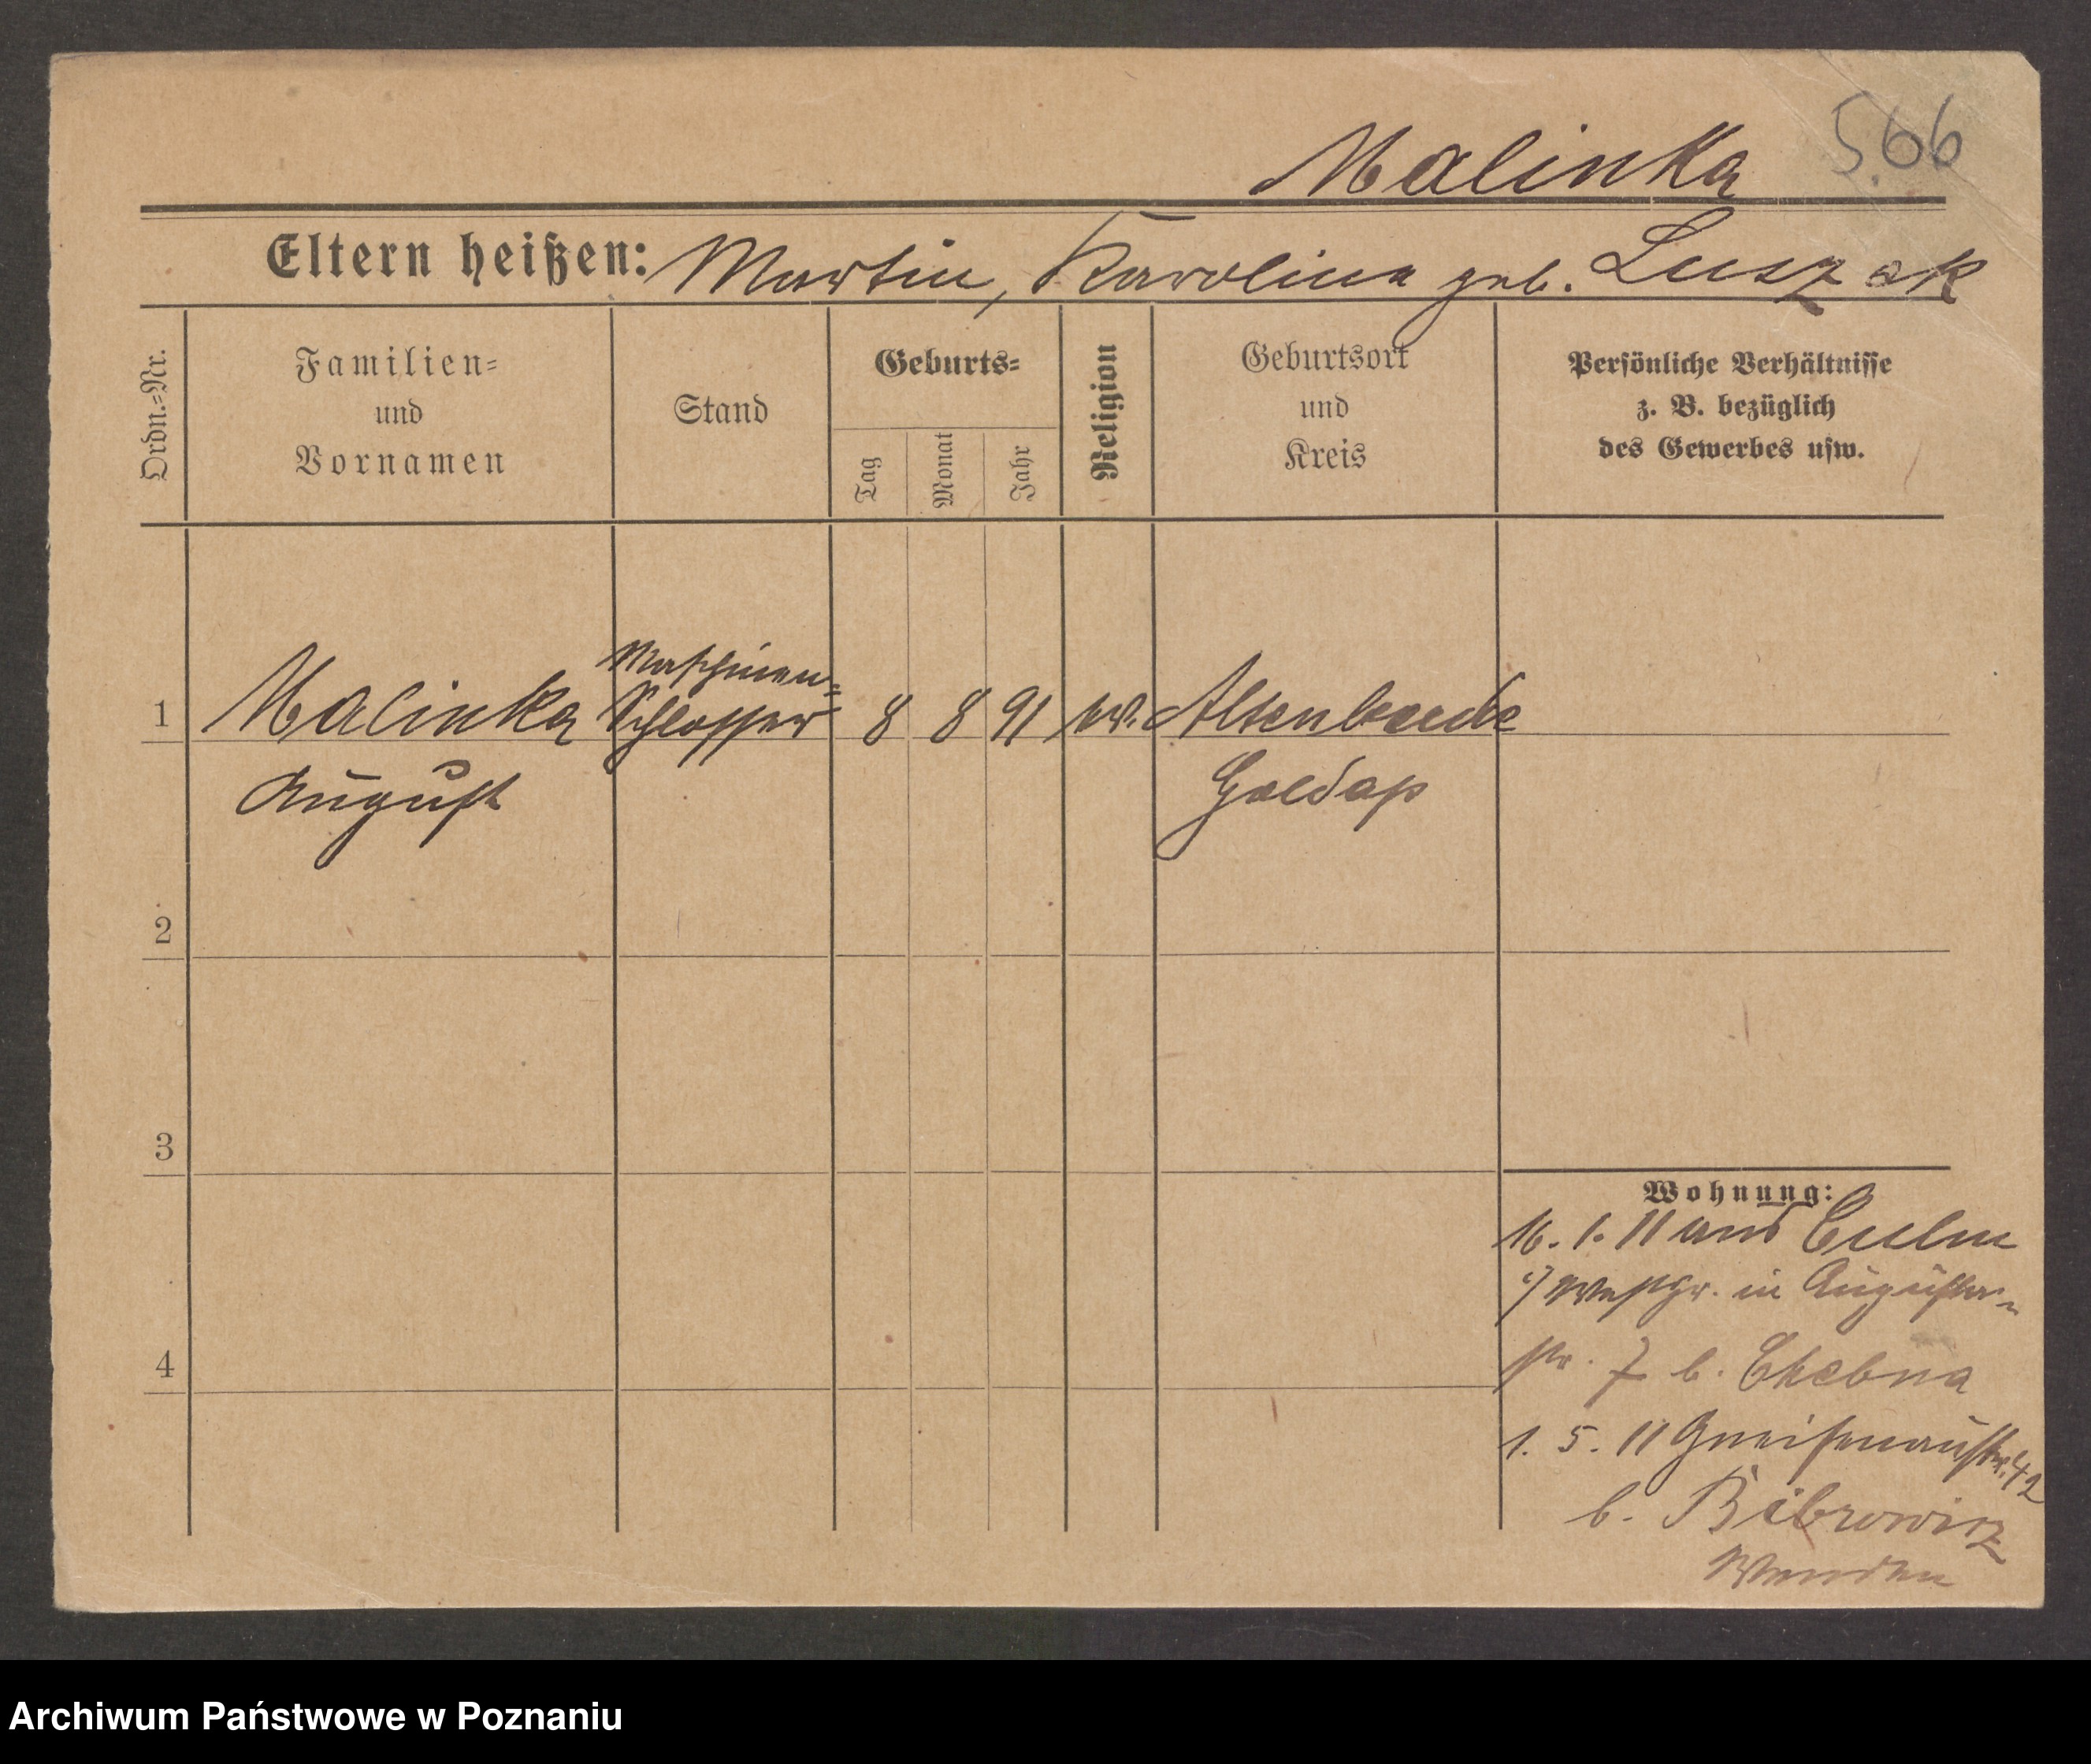 566
Malinka
Eltern heißen: Martin, Karolina geb. Luszak
Ordn.-Nr.
Familien-
und
Vornamen
Stand
Geburts-
Tag
Monat
Jahr
Religion
Geburtsort
und
Kreis
Persönliche Verhältnisse
z. B. bezüglich
des Gewerbes usw.
Maschinen-
1 Malinka Schlosser 8 8 91 ev.
August Goldap
2
3
4
Wohnung:
16. 1. 11 aus Culm
Westpr. in Augusta-
str. 7 b. Chebna
1. 5. 11 Gneisenaustr. 42
b. Bibrowicz
Wenden
Archiwum Państwowe w Poznaniu